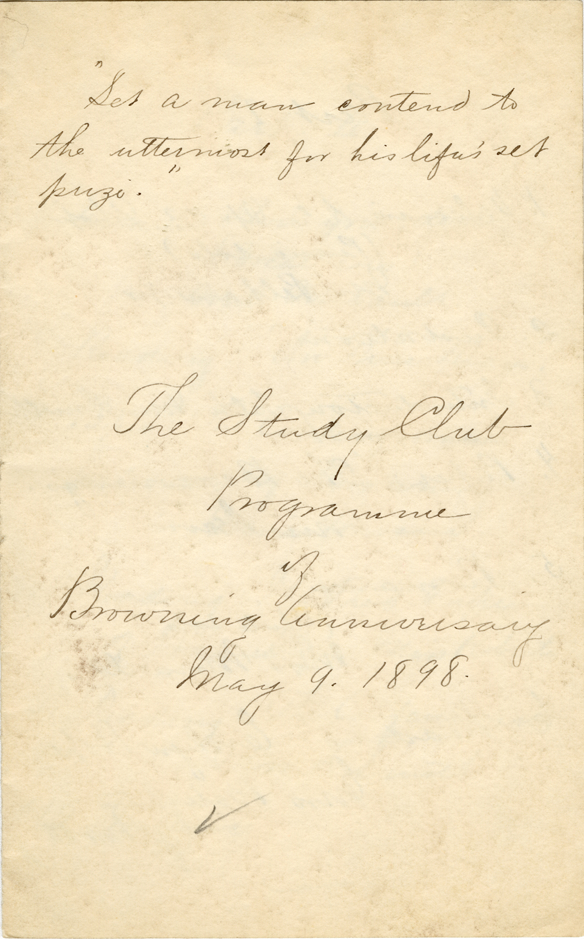 "Let a man contend to
the uttermost for his life's set
prize."
The Study Club
Programme
of
Browning Anniversary
May 9. 1898.